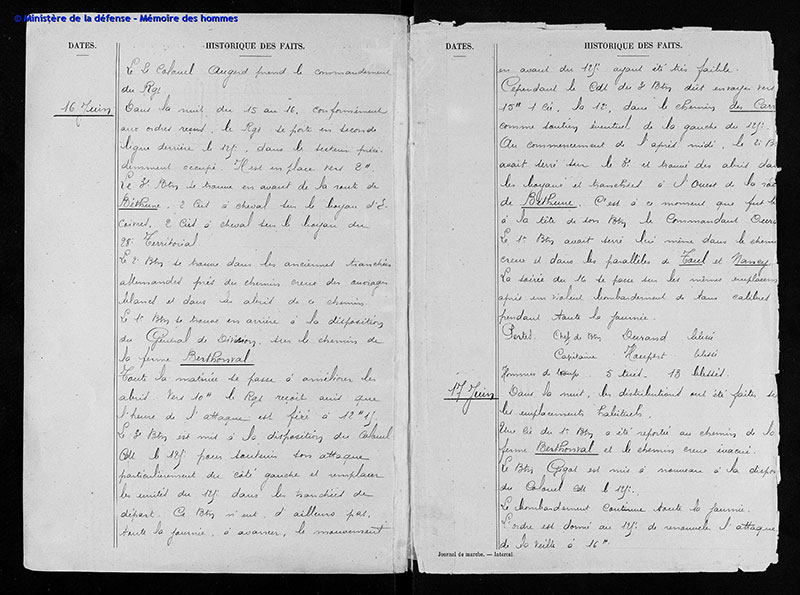 © Ministère de la défense - Mémoire des hommes
DATES. HISTORIQUE DES FAITS.
Le Lt Colonel Augerd prend le commandement
du Rgt
16 Juin Dans la nuit du 15 au 16, conformément
aux ordres reçus, le Rgt se porte en seconde
ligne derrière le 125e, dans le secteur précé-
demment occupé. Il est en place vers 2h.
Le 3e Btn se trouve en avant de la route de
Béthune, 2 Cies à cheval sur le boyau d'E-
coivres, 2 Cies à cheval sur le boyau du
28e Territorial
Le 2e Btn se trouve dans les anciennes tranchées
allemandes près du chemin creux des ouvrages
blancs et dans les abris de ce chemin.
Le 1er Btn se trouve en arrière à la disposition
du Général de Division, sur le chemin de
la ferme Berthonval
Toute la matinée se passe à améliorer les
abris. Vers 10h le Rgt reçoit avis que
l'heure de l'attaque est fixé à 12h15
Le 3e Btn est mis à la disposition du Colonel
Cdt le 125e pour soutenir son attaque
particulièrement du côté gauche et remplacer
les unités du 125e dans les tranchées de
départ. Ce Btn n'eut, d'ailleurs pas,
toute la journée, à avancer, le mouvement
DATES. HISTORIQUE DES FAITS.
en avant du 125e ayant été très faible.
Cependant le Cdt du 3e Btn dût envoyer vers
15h 1 Cie, la 12e, dans le chemin des
comme soutien éventuel de la gauche du 125e.
Au commencement de l'après midi, le 2e B
avait serré sur le 3e et trouvé des abris dans
les boyaux et tranchées à l'Ouest de la
de Béthune. C'est à ce moment que fut
à la tête de son Btn le Commandant
Le 1er Btn avait serré lui même dans le chemin
creux et dans les parallèles de Toul et Nancy
La soirée du 16 se passe sur les mêmes
après un violent bombardement de tous calibres
pendant toute la journée.
Pertes. Chef de Btn Durand blessé
Capitaine Haupert blessé
Hommes de troupe. 5 tués. 18 blessés.
17 Juin Dans la nuit, les distributions ont été faites
les emplacements habituels.
Une Cie du 1er Btn a été reportée au chemin de la
ferme Berthonval et le chemin creux évacué.
Le Btn Gigot est mis à nouveau à la
du Colonel Cdt le 125e.
Le bombardement continue toute la journée.
L'ordre est donné au 125e de renouveler l'attaque
de la veille à 16h.
Journal de marche. — Intercal.